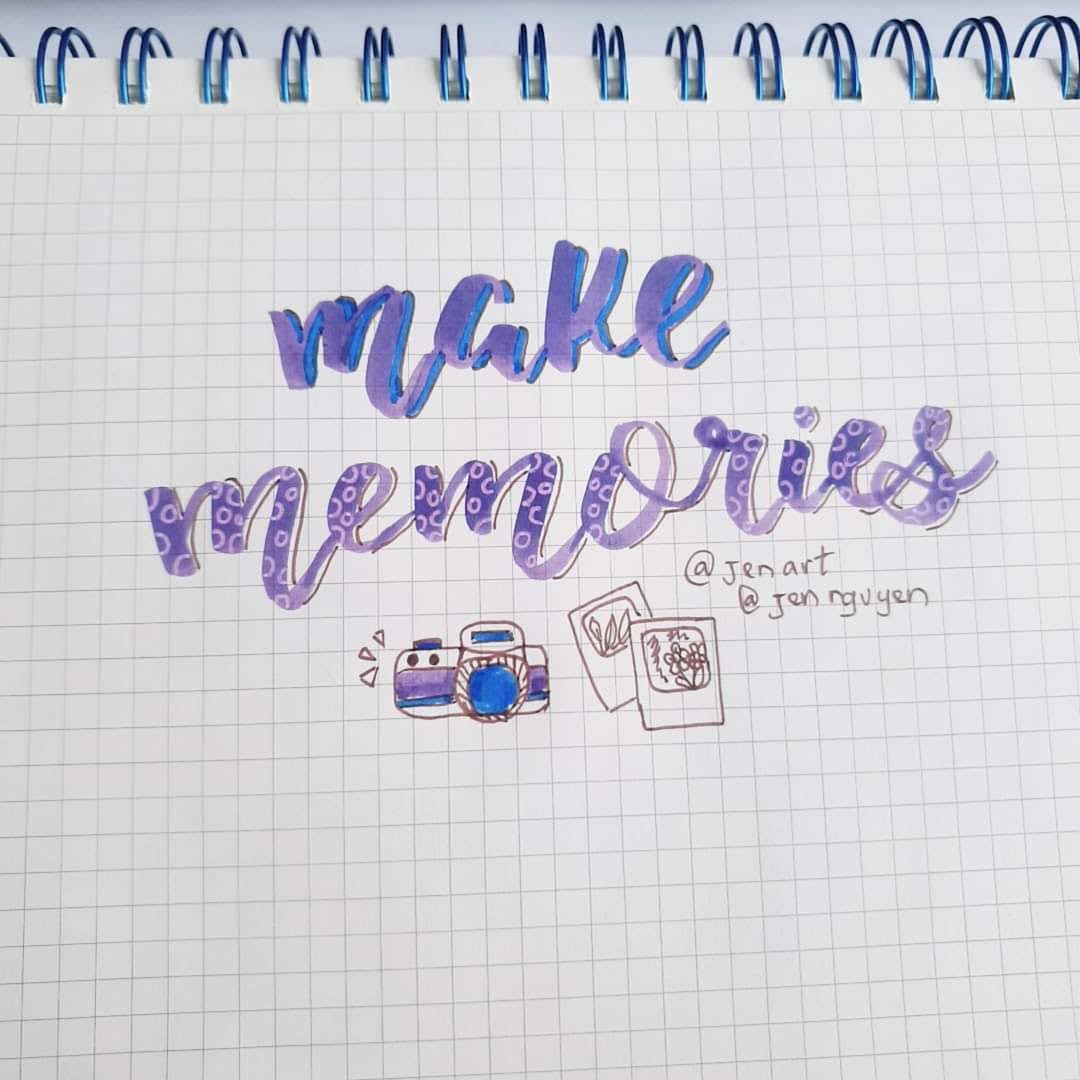 make
memories
@jenart
@jennguyen